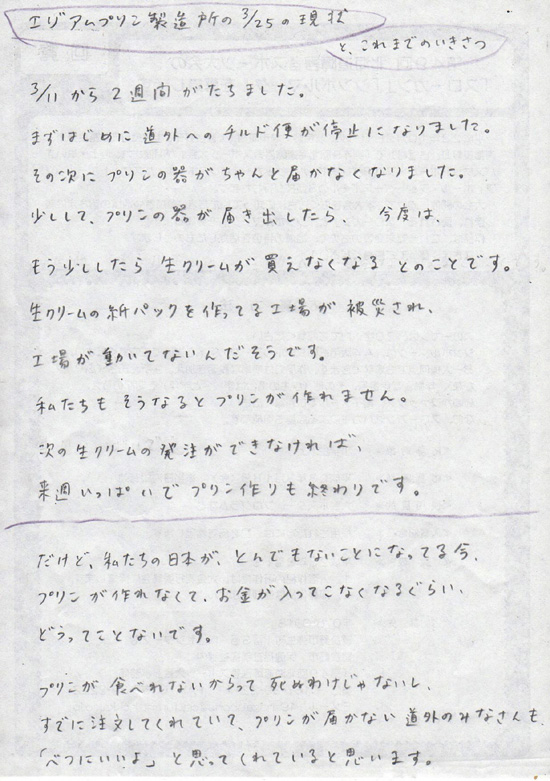 エゾアムプリン製造所の3/25の現状
と、これまでのいきさつ
3/11から2週間がたちました。
まずはじめに道外へのチルド便が停止になりました。
その次にプリンの器がちゃんと届かなくなりました。
少しして、プリンの器が届き出したら、今度は、
もう少ししたら生クリームが買えなくなるとのことです。
生クリームの紙パックを作ってる工場が被災され、
工場が動いてないんだそうです。
私たちもそうなるとプリンが作れません。
次の生クリームの発注ができなければ、
来週いっぱいでプリン作りも終わりです。
だけど、私たちの日本が、とんでもないことになってる今、
プリンが作れなくて、お金が入ってこなくなるぐらい、
どうってことないです。
プリンが食べれないからって死ぬわけじゃないし、
すでに注文してくれていて、プリンが届かない道外のみなさんも、
「べつにいいよ」と思ってくれていると思います。